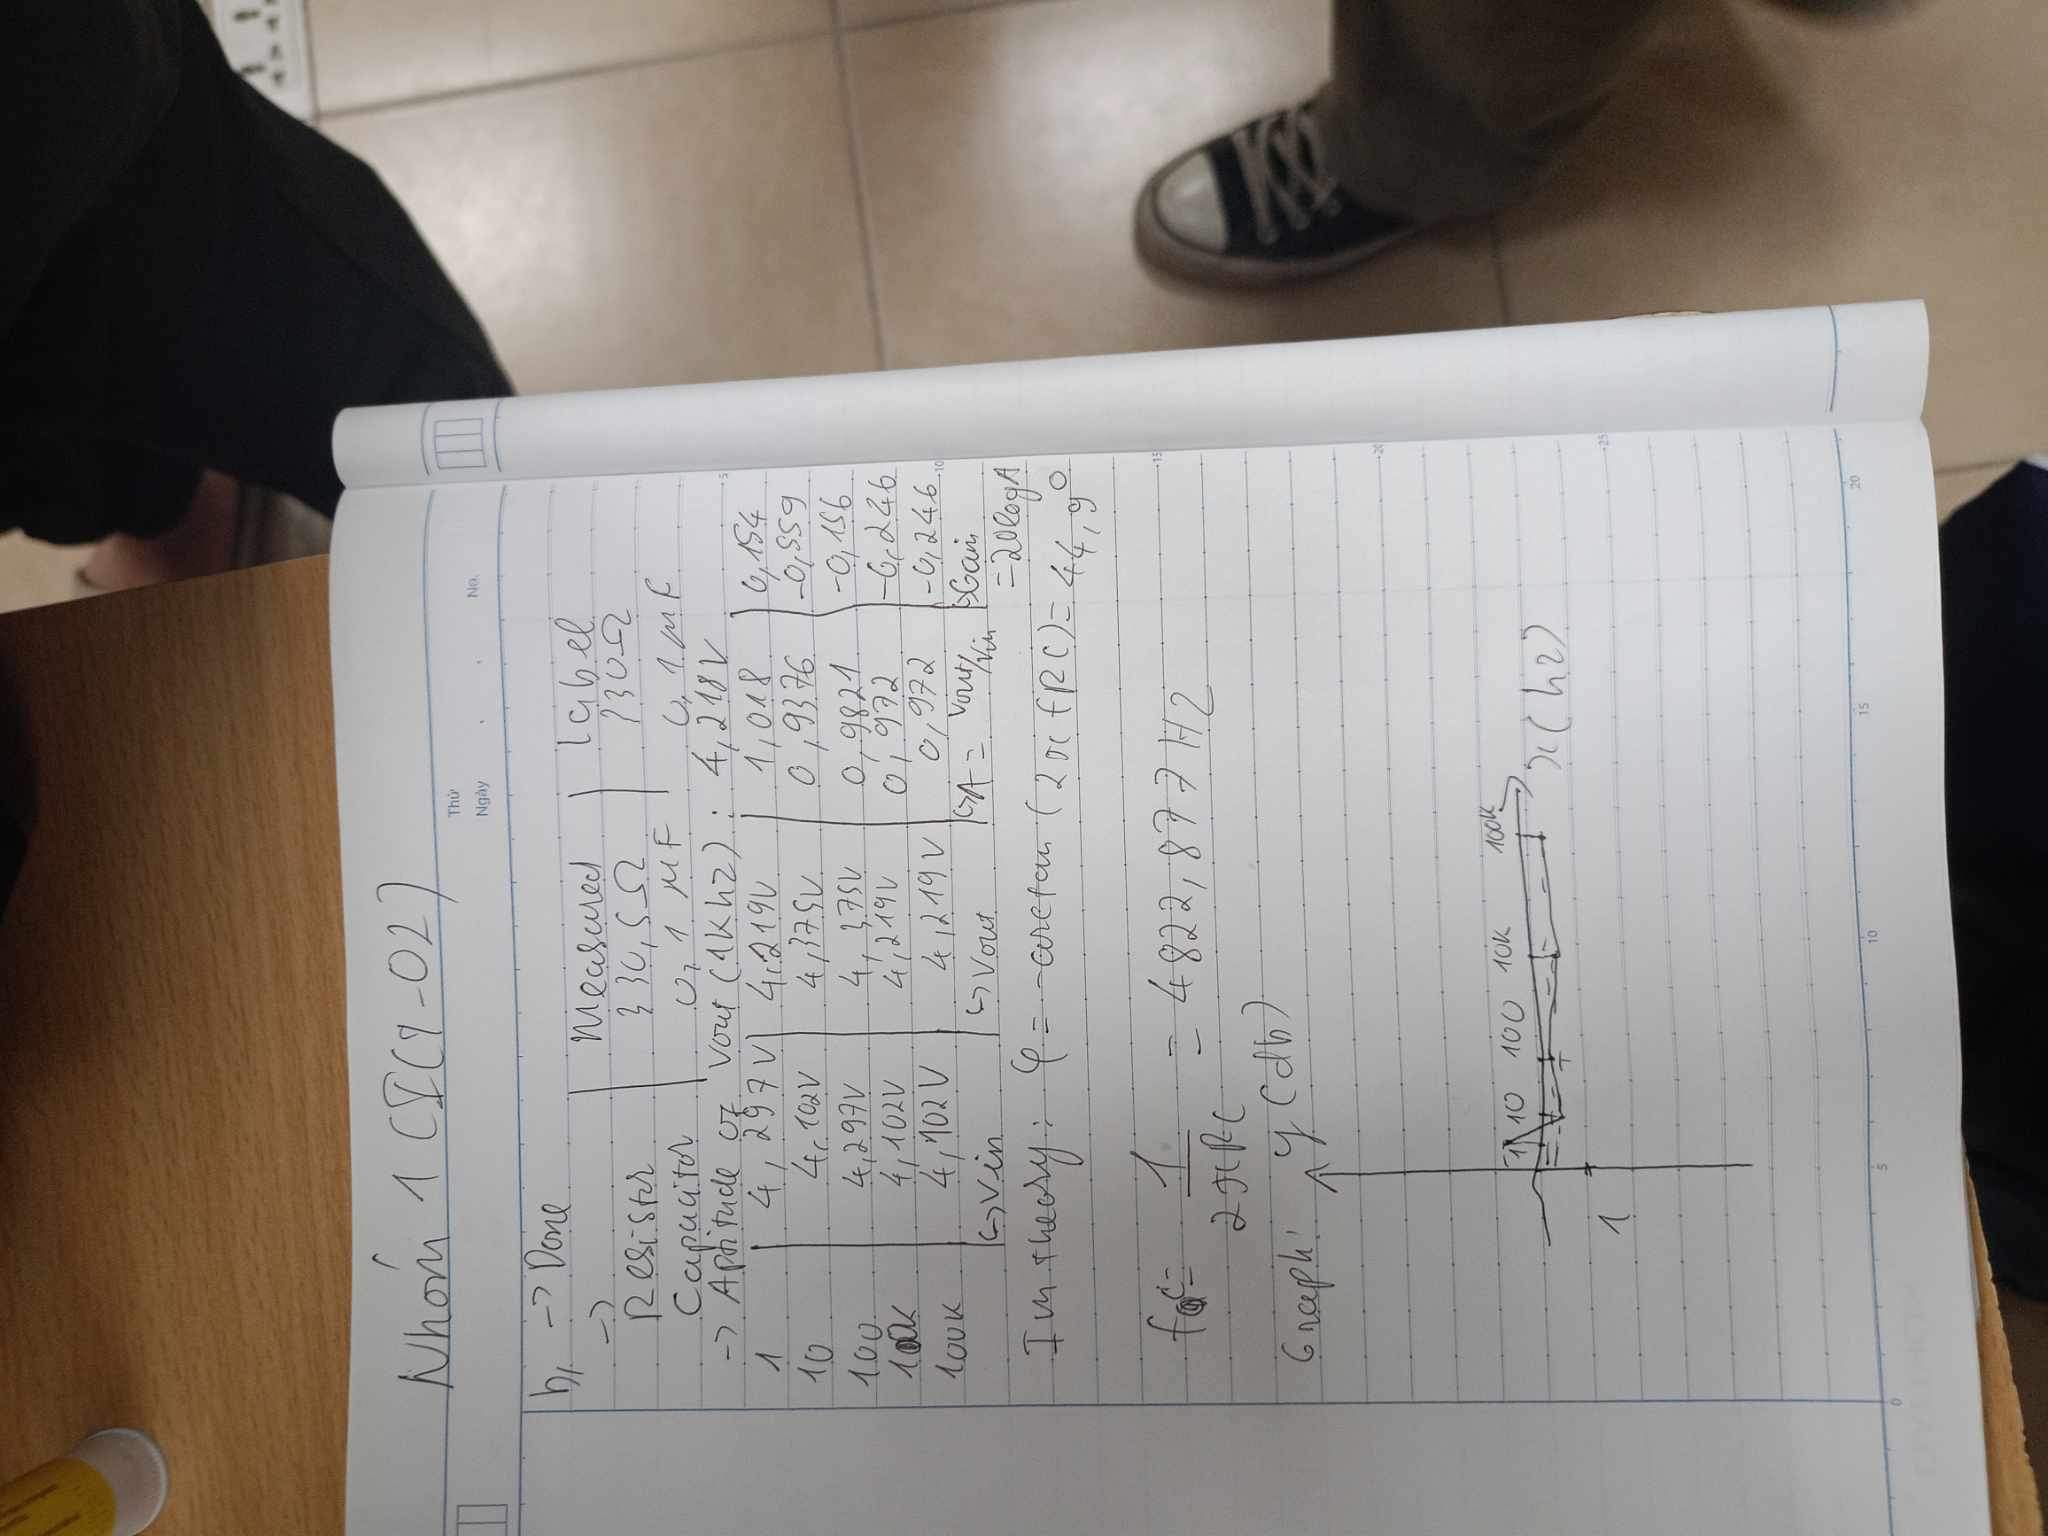 Nhóm 1 (ICT-02)
Thứ
Ngày
No.
b, -> Done
->
Measured | label
Resistor | 330,5Ω | 330Ω
Capacitor | 0,1 μF | 0,1 μF
-> Aptitude of Vout (1Khz) : 4,218V
1 | 4,297V | 4,219V | 1,018 | 0,154
10 | 4,102V | 4,375V | 0,9376 | -0,559
100 | 4,297V | 4,375V | 0,9821 | -0,156
10K | 4,102V | 4,219V | 0,972 | -0,246
100K | 4,102V | 4,219V | 0,972 | -0,246
↳Vin ↳Vout ↳A = Vout/Vin ↳Gain
=20logA
In theory: φ = -arctan (2π fRC) = 44,9°
fc = 1/2πRC = 4822,877Hz
Graph: y (db)
1 10 100 10K 100K
x (hz)
1
5
10
15
20
25
0
5
10
15
20